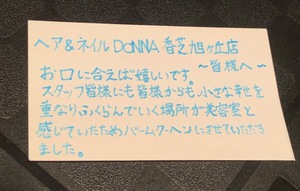 ヘア&ネイル DONNA 香芝旭ヶ丘店
〜皆様へ〜
お口に合えば嬉しいです。
スタッフ皆様にも皆様からも、小さな幸せを
重なりふくらんでいく場所が美容室と
感じていたためバームクーヘンにさせていただき
ました。